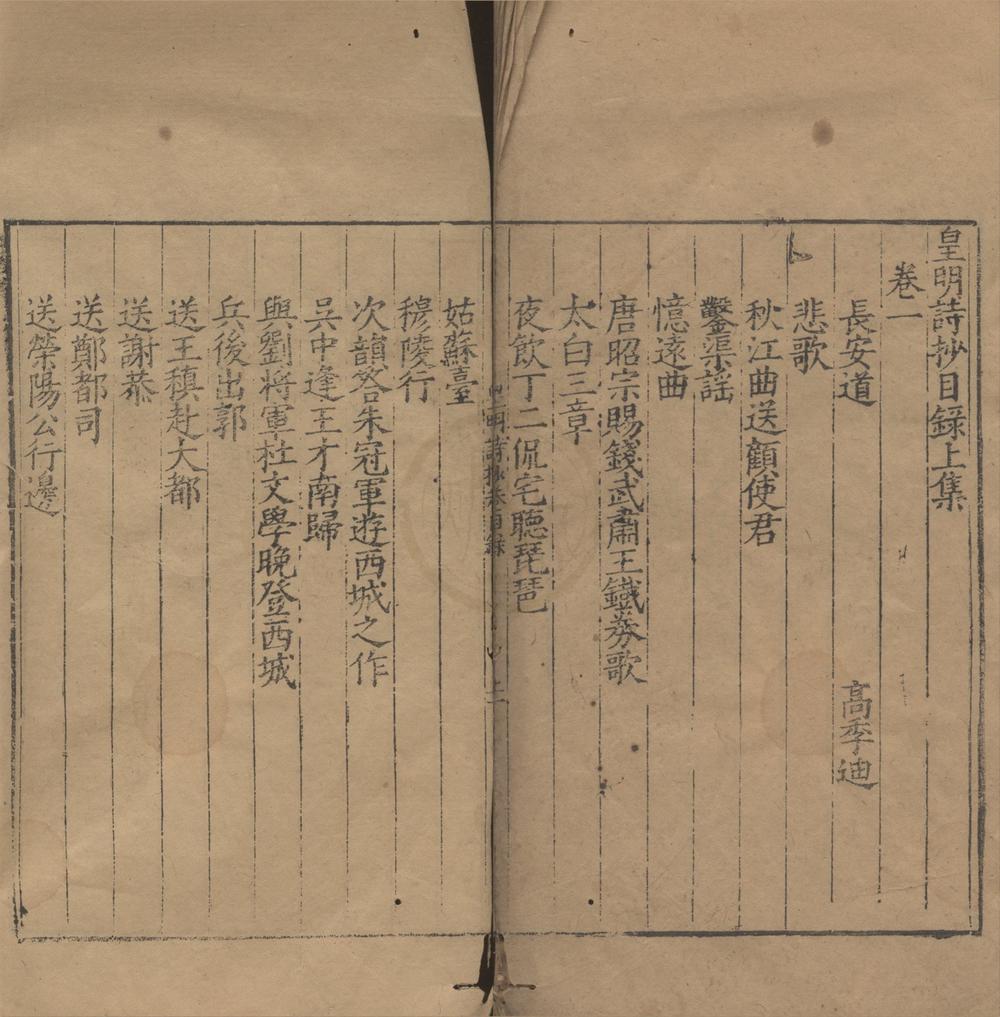 皇明詩抄目錄上集
卷一
長安道　高季迪
悲歌
秋江曲送顧使君
鑿渠謠
憶遠曲
唐昭宗賜錢武肅王鐵券歌
太白三章
夜飲丁二侃宅聽琵琶
皇明詩抄卷目錄
上一
姑蘇臺
穆陵行
次韻答朱冠軍遊西城之作
吳中逢王才南歸
與劉將軍杜文學晚登西城
兵後出郭
送王稹赴大都
送謝恭
送鄭都司
送榮陽公行邊